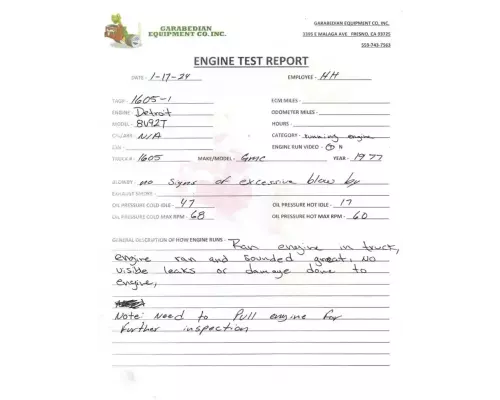 GARABEDIAN
EQUIPMENT CO. INC.
GARABEDIAN EQUIPMENT CO, INC.
3195 E MALAGA AVE. FRESNO, CA 93725
559-743-7563
ENGINE TEST REPORT
DATE - 1-17-24 EMPLOYEE - HH
TAG# - 1605-1 ECM MILES -
ENGINE - Detroit ODOMETER MILES -
MODEL - 8V92T HOURS -
CPL/ARR - N/A CATEGORY - running engine
ESN - ENGINE RUN VIDEO - Y N
TRUCK # - 1605 MAKE/MODEL - GMC YEAR - 1977
BLOWBY - no signs of excessive blow by
EXHAUST SMOKE -
OIL PRESSURE COLD IDLE - 47 OIL PRESSURE HOT IDLE - 17
OIL PRESSURE COLD MAX RPM - 68 OIL PRESSURE HOT MAX RPM - 60
GENERAL DESCRIPTION OF HOW ENGINE RUNS - Ran engine in truck,
engine ran and sounded great, no
visible leaks or damage done to
engine,
Note: Need to Pull engine for
further inspection